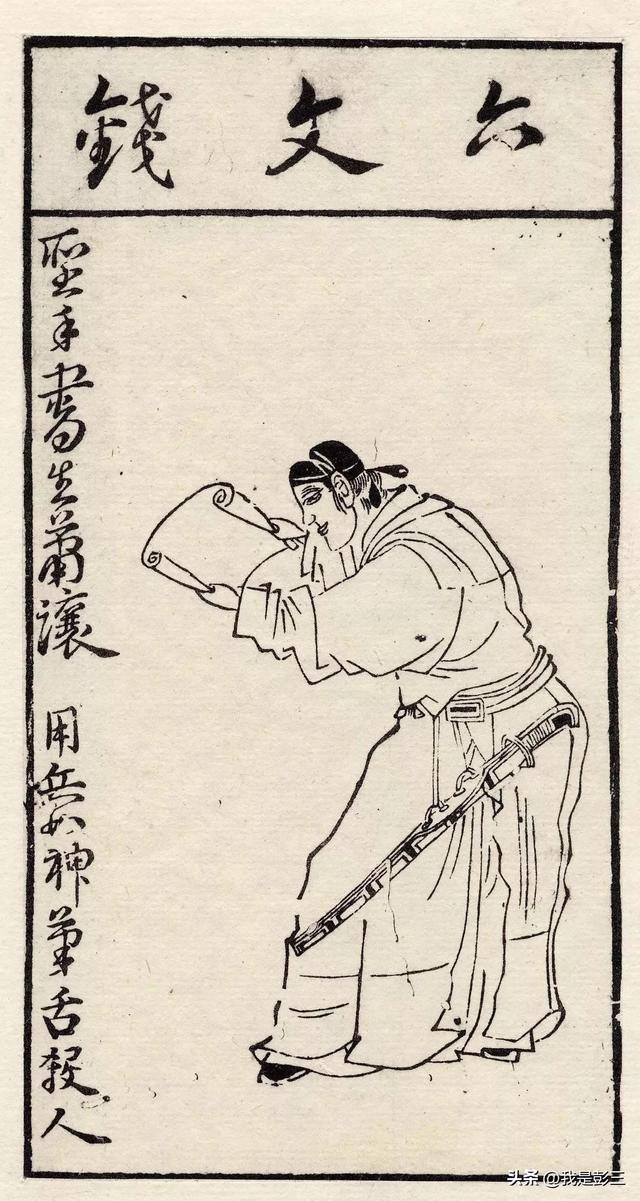 六文錢
聖手書生蕭讓 用兵如神筆舌殺人
头条 @我是彭三